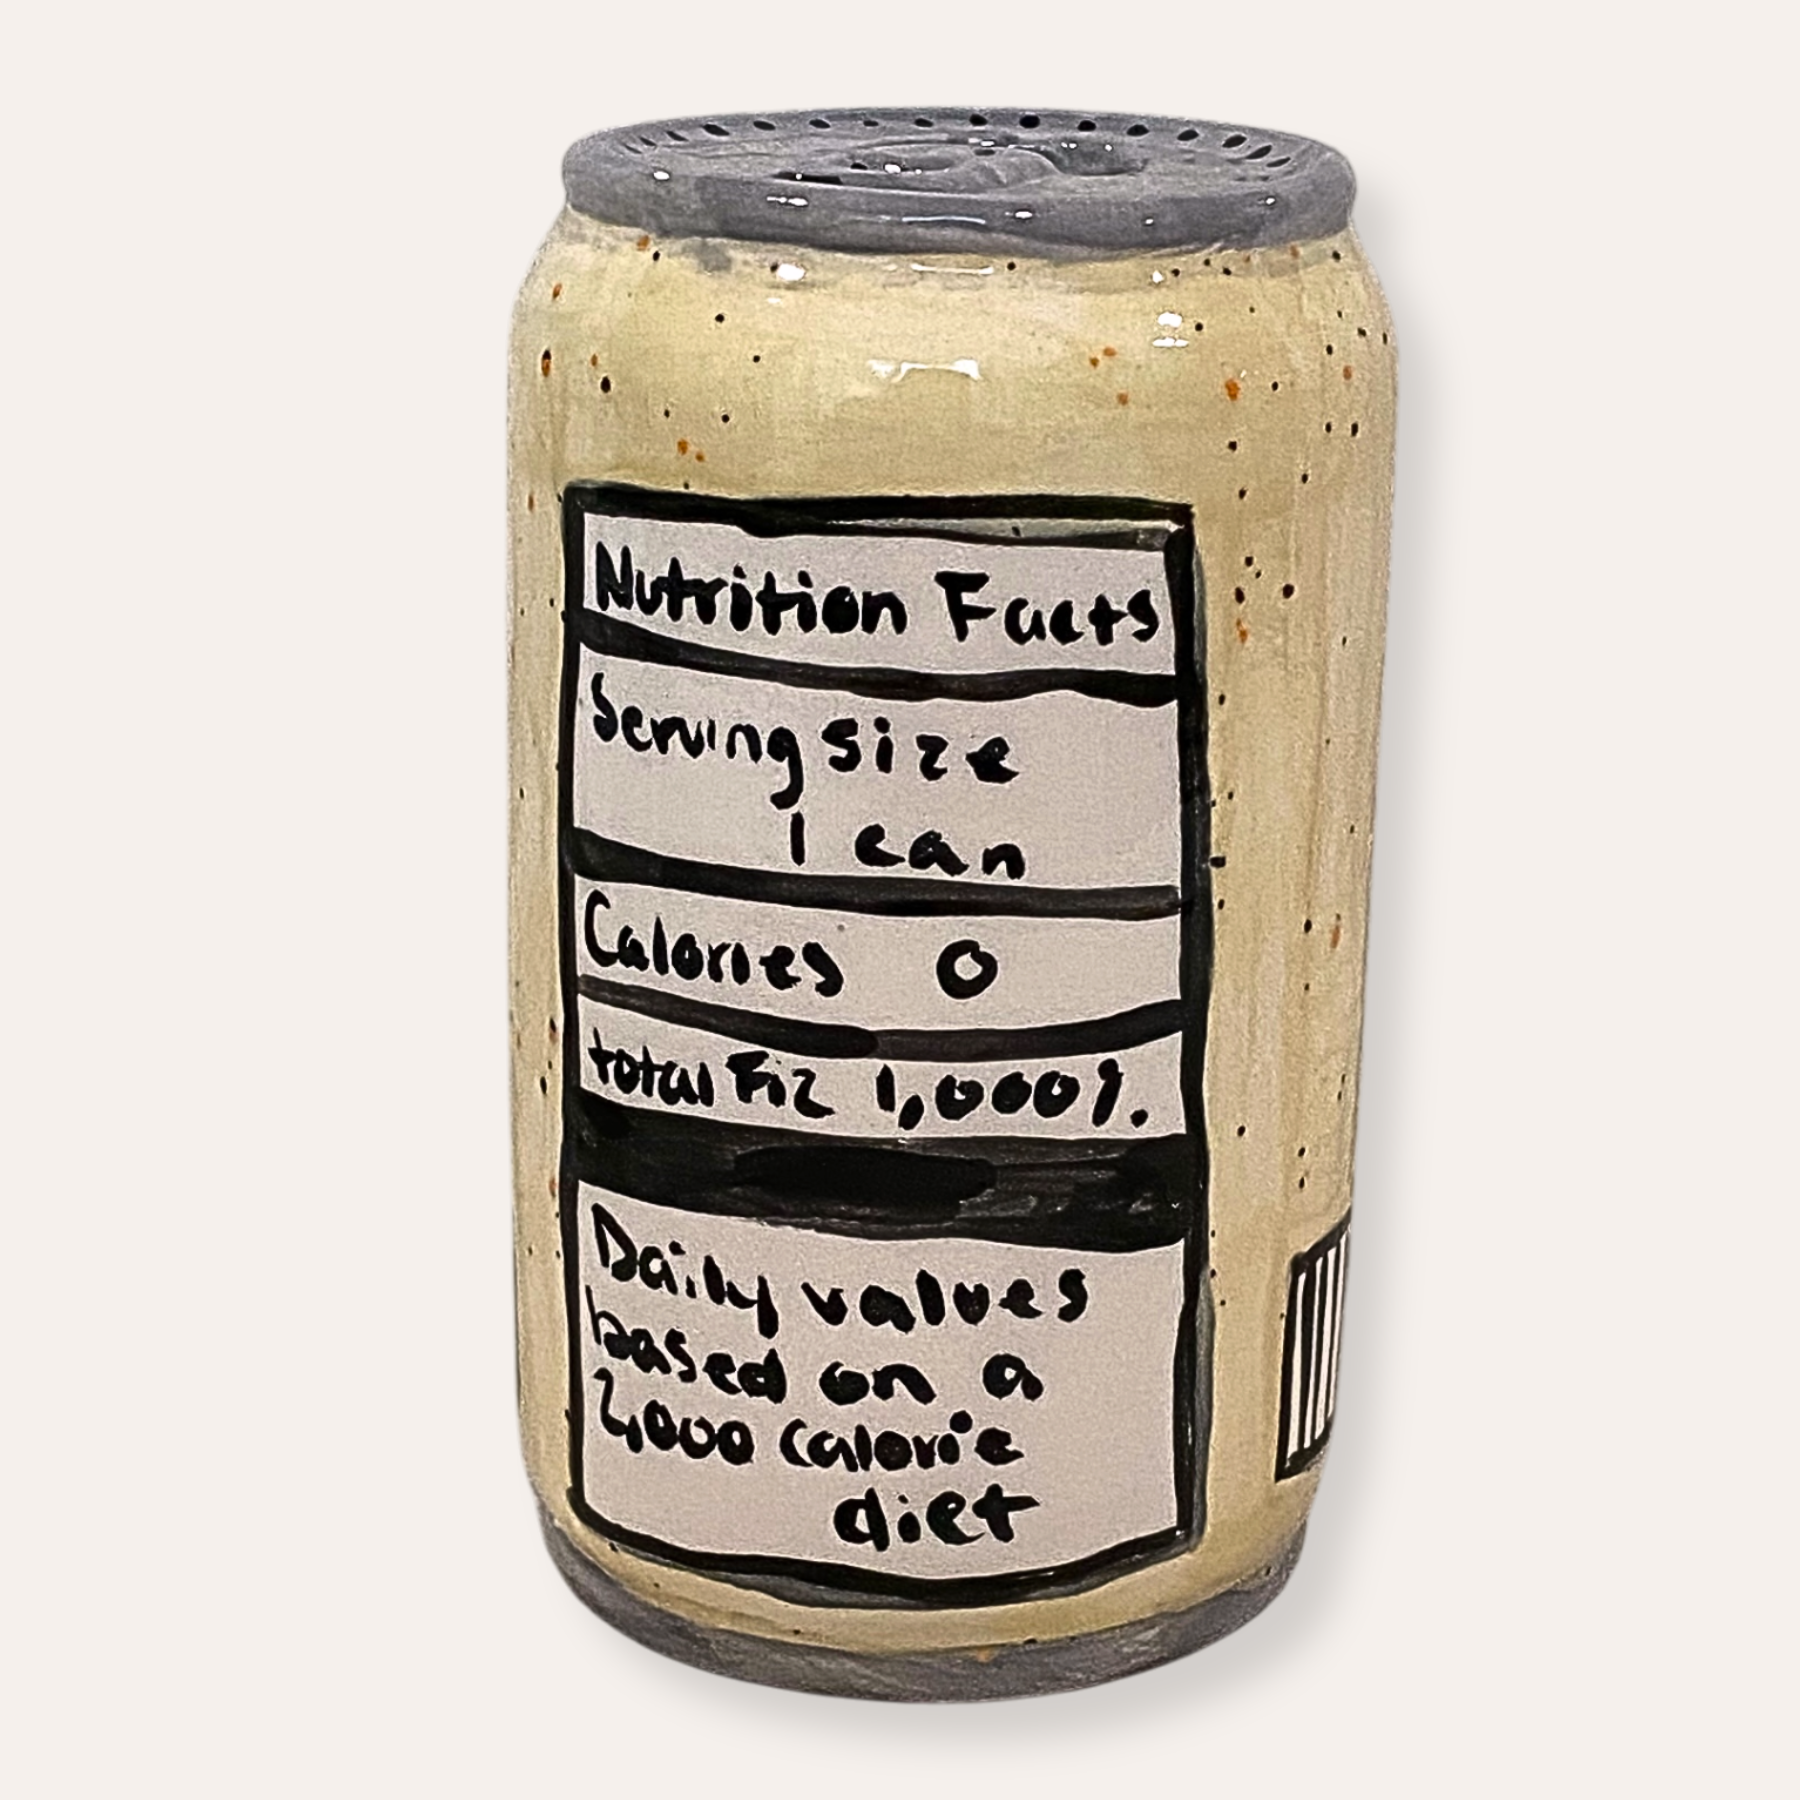 Nutrition Facts
Serving size
1 can
Calories 0
total Fiz 1,000%
Daily values
based on a
2,000 calorie
diet